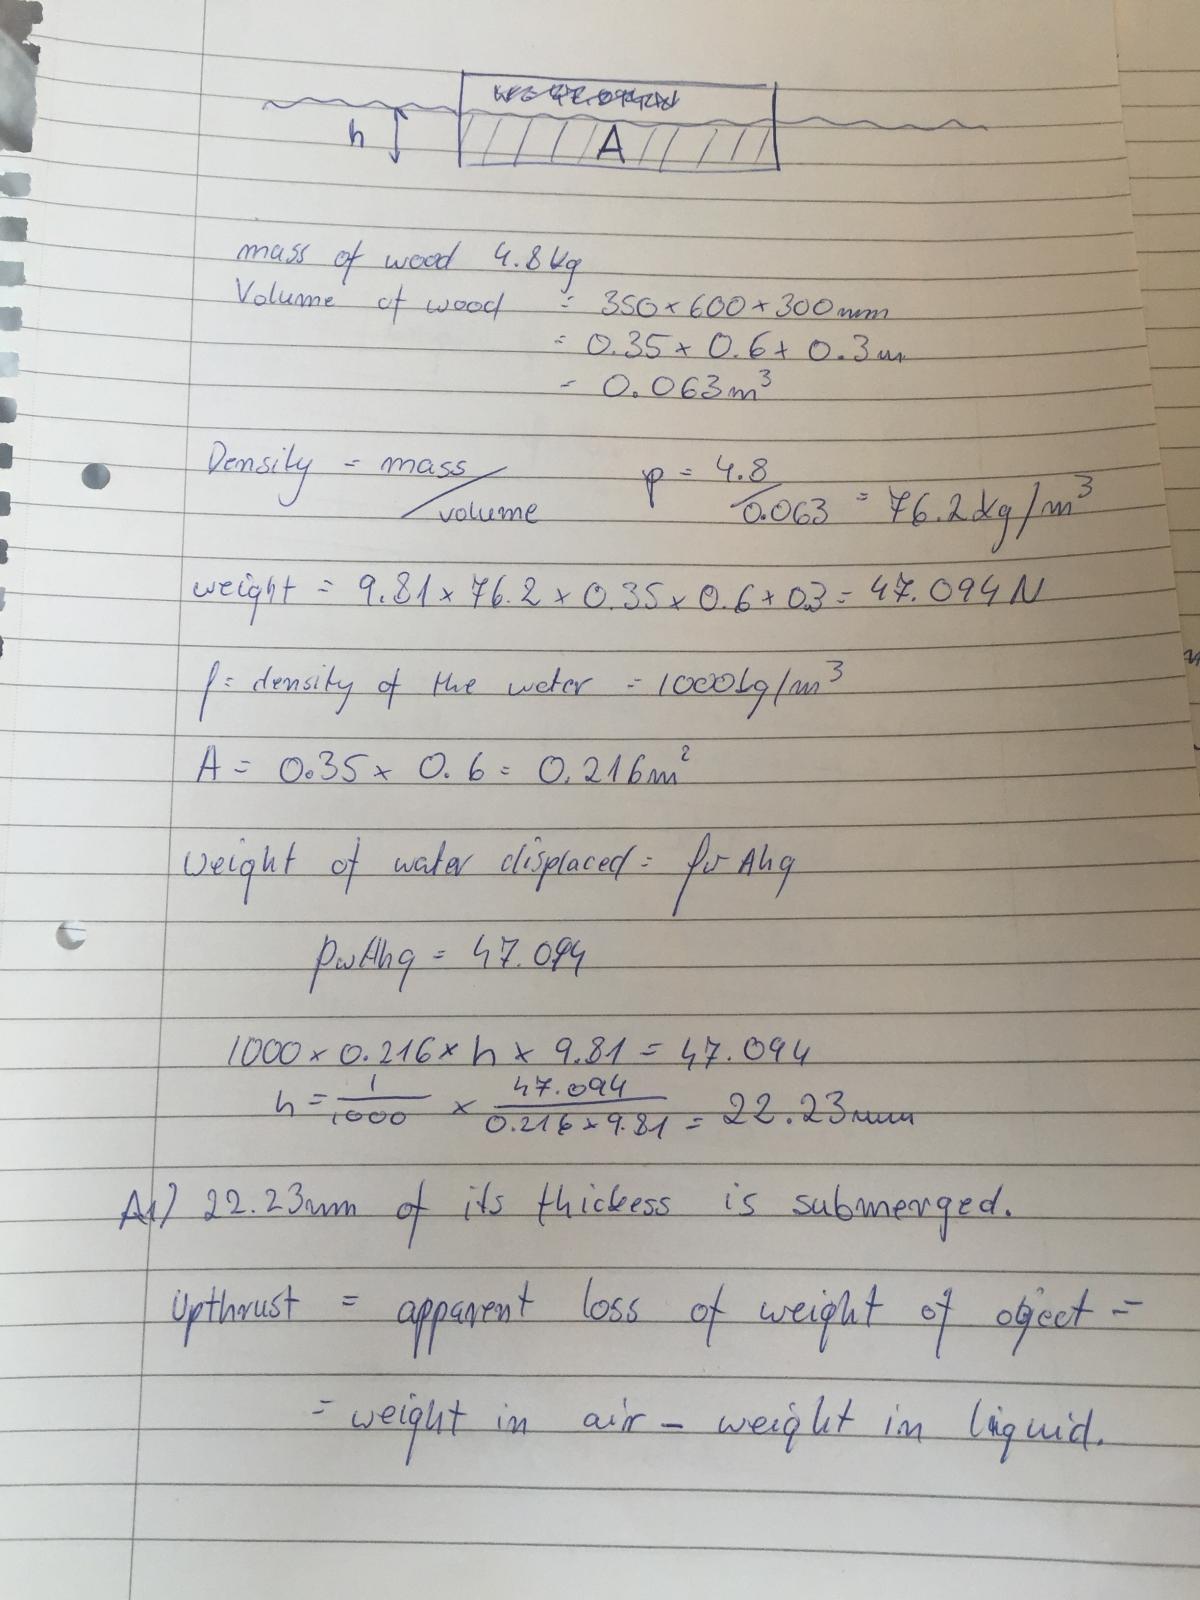 h
A
mass of wood 4.8kg
Volume of wood = 350 × 600 × 300mm
= 0.35 × 0.6 × 0.3m
= 0.063m³
Density = mass / volume ρ = 4.8 / 0.063 = 76.2kg/m³
weight = 9.81 × 76.2 × 0.35 × 0.6 × 0.3 = 47.094N
ρ = density of the water = 1000kg/m³
A = 0.35 × 0.6 = 0.216m²
Weight of water displaced = ρw Ahg
ρwAhg = 47.094
1000 × 0.216 × h × 9.81 = 47.094
h = 1/1000 × 47.094/0.216 × 9.81 = 22.23mm
A1) 22.23mm of its thickess is submerged.
Upthrust = apparent loss of weight of object =
= weight in air - weight in liquid.